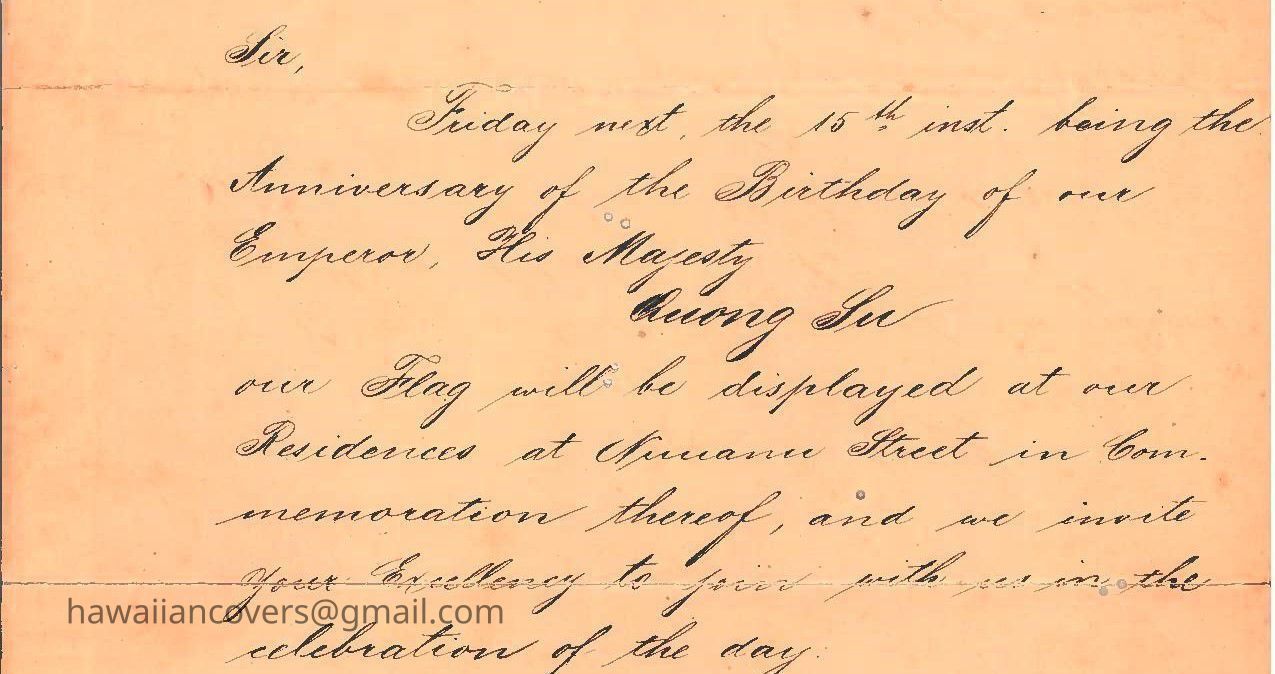 Sir,
Friday next, the 15th inst. being the
Anniversary of the Birthday of our
Emperor, His Majesty
Quong Su
our Flag will be displayed at our
Residences at Nuuanu Street in Com-
memoration thereof, and we invite
your Excellency to join with us in the
hawaiiancovers@gmail.com
celebration of the day.